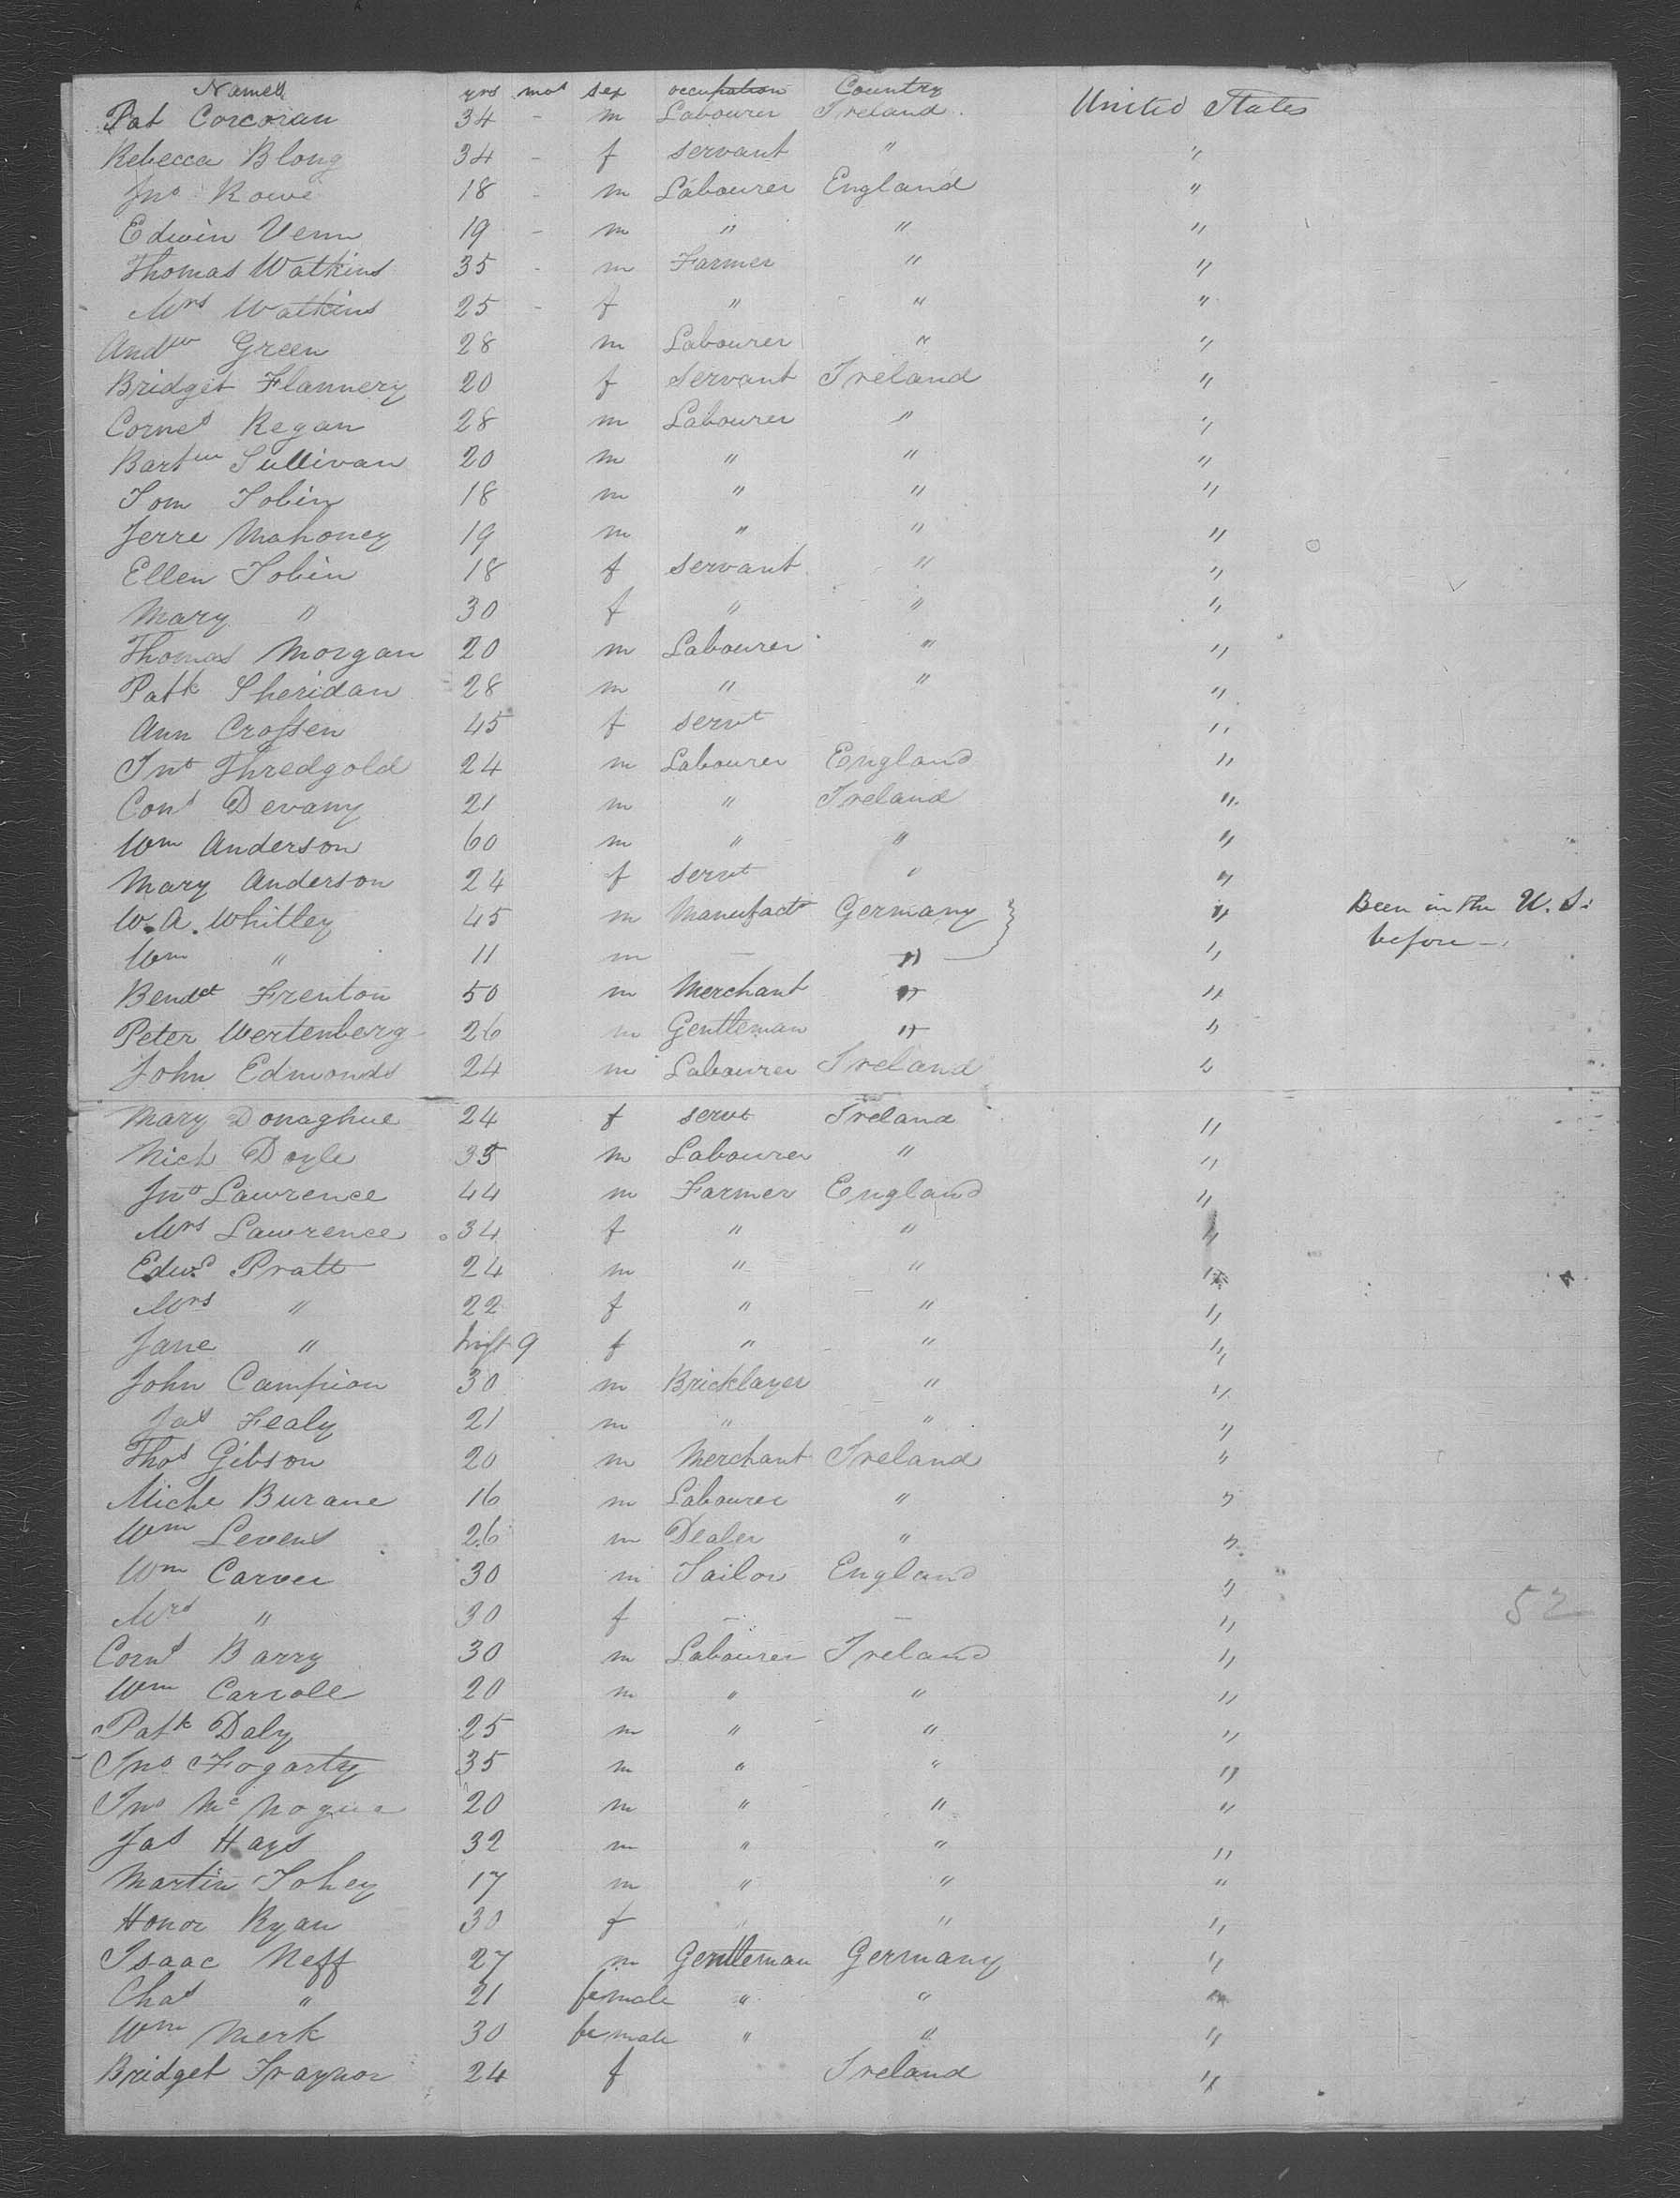 Names yrs mos sex occupation Country
Pat Corcoran 34 - m Labourer Ireland United States
Rebecca Blong 34 - f servant " "
Jno Rowe 18 - m Labourer England "
Edwin Venn 19 - m " " "
Thomas Watkins 35 - m Farmer " "
Mrs Watkins 25 - f " " "
Andw Green 28 m Labourer " "
Bridget Flannery 20 f servant Ireland "
Corns Regan 28 m Labourer " "
Bartw Sullivan 20 m " " "
Tom Tobin 18 m " " "
Jerre Mahoney 19 m " " "
Ellen Tobin 18 f servant " "
Mary " 30 f " " "
Thomas Morgan 20 m Labourer " "
Patk Sheridan 28 m " " "
Ann Crossen 45 f servt "
Jno Thredgold 24 m Labourer England "
Cons Devany 21 m " Ireland "
Wm Anderson 60 m " " "
Mary Anderson 24 f servt " "
W. A. Whitley 45 m Manufactr Germany " Been in the U.S.
Wm " 11 m - " " before -
Bendct Frenton 50 m Merchant " "
Peter Wertenberg 26 m Gentleman " "
John Edmonds 24 m Labourer Ireland "
Mary Donaghue 24 f servt Ireland "
Nich Doyle 35 m Labourer " "
Jno Lawrence 44 m Farmer England "
Mrs Lawrence 34 f " " "
Edwd Pratt 24 m " " "
Mrs " 22 f " " "
Jane " Inft 9 f " " "
John Campion 30 m Bricklayer " "
Jas Fealy 21 m " " "
Thos Gibson 20 m Merchant Ireland "
Miche Burane 16 m Labourer " "
Wm Levens 26 m Dealer " "
Wm Carver 30 m Tailor England "
Mrs " 30 f - - " 52
Corns Barry 30 m Labourer Ireland "
Wm Carroll 20 m " " "
Patk Daly 25 m " " "
Jno Fogarty 35 m " " "
Jno Mc 20 m " " "
Jas Hays 32 m " " "
Martin Tohey 17 m " " "
Honor Ryan 30 f " " "
Isaac Neff 27 m Gentleman Germany "
Chas " 21 female " " "
Wm Merk 30 female " " "
Bridget Traynor 24 f Ireland "